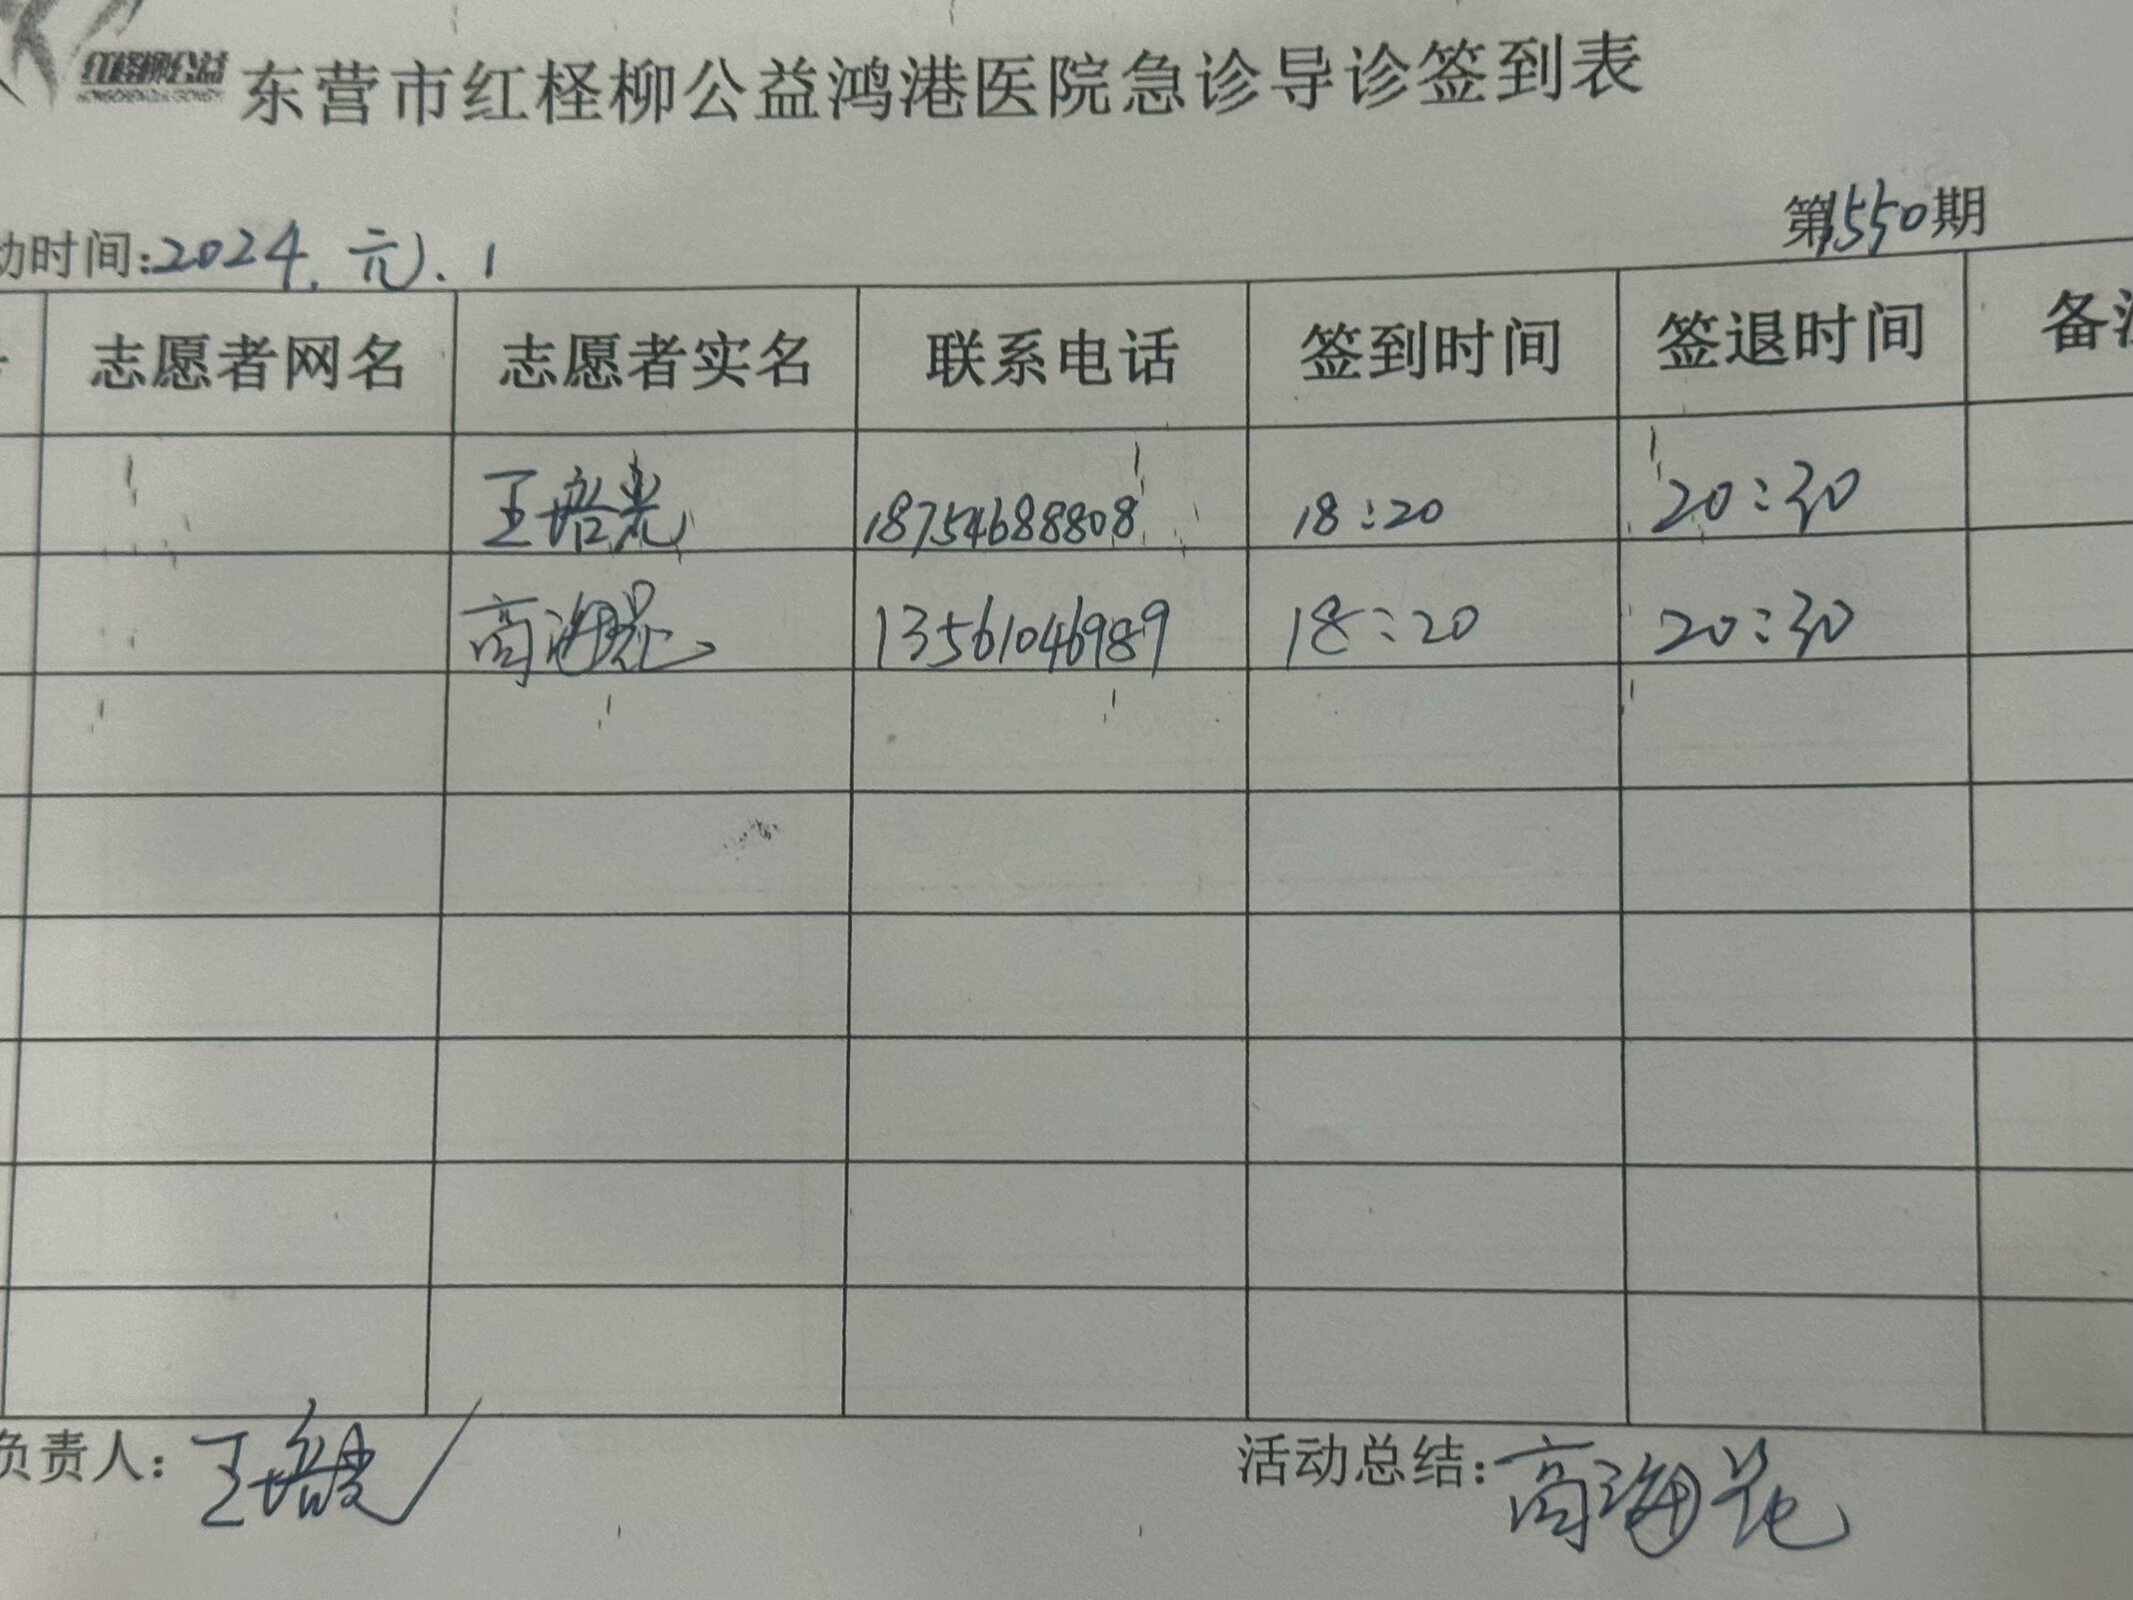 红柽柳公益
东营市红柽柳公益鸿港医院急诊导诊签到表
第1550期
动时间:2024.元.1
志愿者网名 志愿者实名 联系电话 签到时间 签退时间 备注
王培光 18754688808 18:20 20:30
高海花 13561046989 18:20 20:30
负责人:王培光
活动总结:高海花